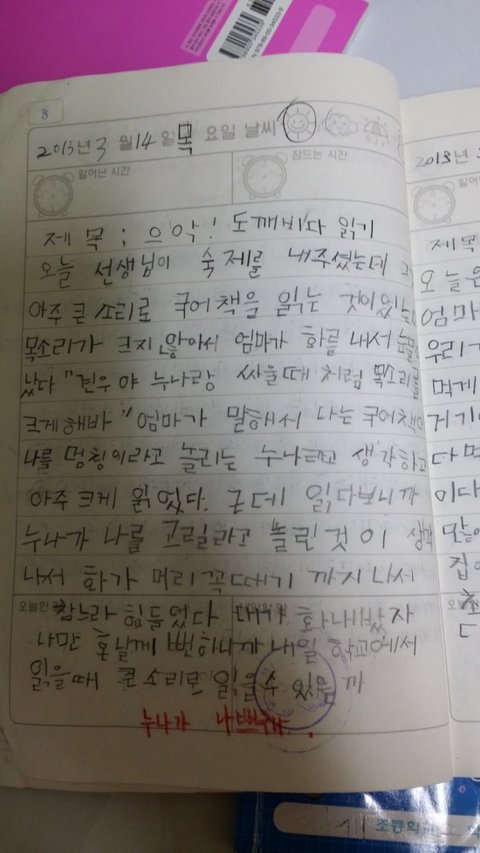 8
2013년 3 월 14 일 목 요일 날씨
일어난 시간 잠드는 시간
제 목 : 으악! 도깨비다 읽기
오늘 선생님이 숙제를 내주셨는데
아주 큰 소리로 국어책을 읽는 것이있는데
목소리가 크지 않아서 엄마가 화를 내서 눈물
났다 "건우야 누나랑 싸울때처럼 목소리를
크게해바" 엄마가 말해서 나는 국어책이
나를 멍칭이라고 놀리는 누나라고 생각하고
아주 크게 읽었다. 근데 읽다보니까
누나가 나를 고릴라고 놀린것이 생각
나서 화가 머리꼭때기 까지 나서
참느라 힘들었다 내가 화내봤자
나만 혼날께 뻔하니까 내일 학교에서
읽을때 큰소리로 읽을수 있을까
누나가 나쁘구나.
2013년
제목
오늘은
엄마
우리
먹게
거기
다 먹
이다
많이
집
초등학교